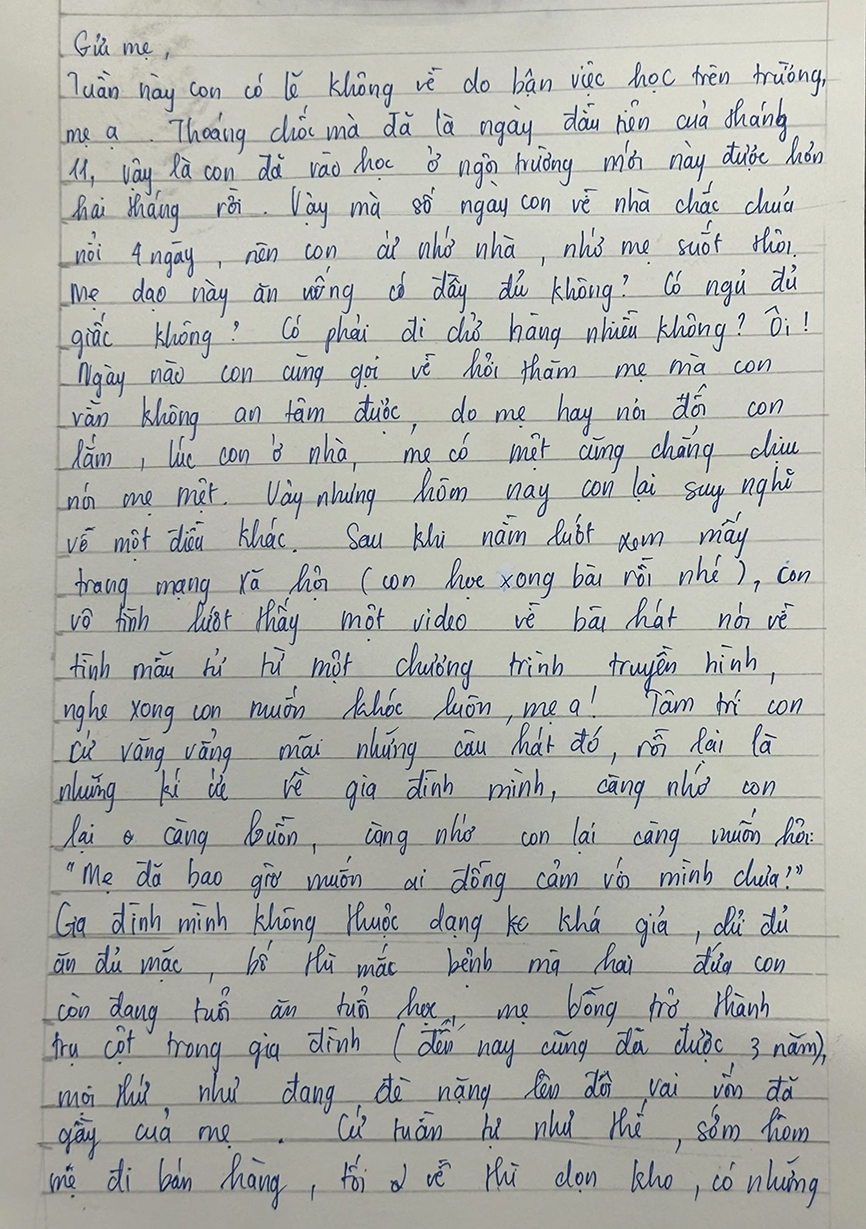 Gửi mẹ,
Tuần này con có lẽ không về do bận việc học trên trường,
mẹ ạ. Thoáng chốc mà đã là ngày đầu tiên của tháng
11, vậy là con đã vào học ở ngôi trường mới này được hơn
hai tháng rồi. Vậy mà số ngày con về nhà chắc chưa
nổi 4 ngày, nên con cứ nhớ nhà, nhớ mẹ suốt thôi.
Mẹ dạo này ăn uống có đầy đủ không? Có ngủ đủ
giấc không? Có phải đi chở hàng nhiều không? Ôi!
Ngày nào con cũng gọi về hỏi thăm mẹ mà con
vẫn không an tâm được, do mẹ hay nói dối con
lắm, lúc con ở nhà, mẹ có mệt cũng chẳng chịu
nói mẹ mệt. Vậy nhưng hôm nay con lại suy nghĩ
về một điều khác. Sau khi nằm lướt xem mấy
trang mạng xã hội (con học xong bài rồi nhé), con
vô tình lướt thấy một video về bài hát nói về
tình mẫu tử từ một chương trình truyền hình,
nghe xong con muốn khóc luôn, mẹ ạ! Tâm trí con
cứ văng vẳng mãi những câu hát đó, rồi lại là
những kí ức về gia đình mình, càng nhớ con
lại càng buồn, càng nhớ con lại càng muốn hỏi:
"Mẹ đã bao giờ muốn ai đồng cảm với mình chưa?"
Gia đình mình không thuộc dạng khá giả, đủ đủ
ăn đủ mặc, bố thì mắc bệnh mà hai đứa con
còn đang tuổi ăn tuổi học, mẹ bỗng trở thành
trụ cột trong gia đình (đến nay cũng đã được 3 năm),
mọi thứ như đang đè nặng lên đôi vai vốn đã
gầy của mẹ. Cứ tuần tự như thế, sớm hôm
mẹ đi bán hàng, tối về thì dọn kho, có những